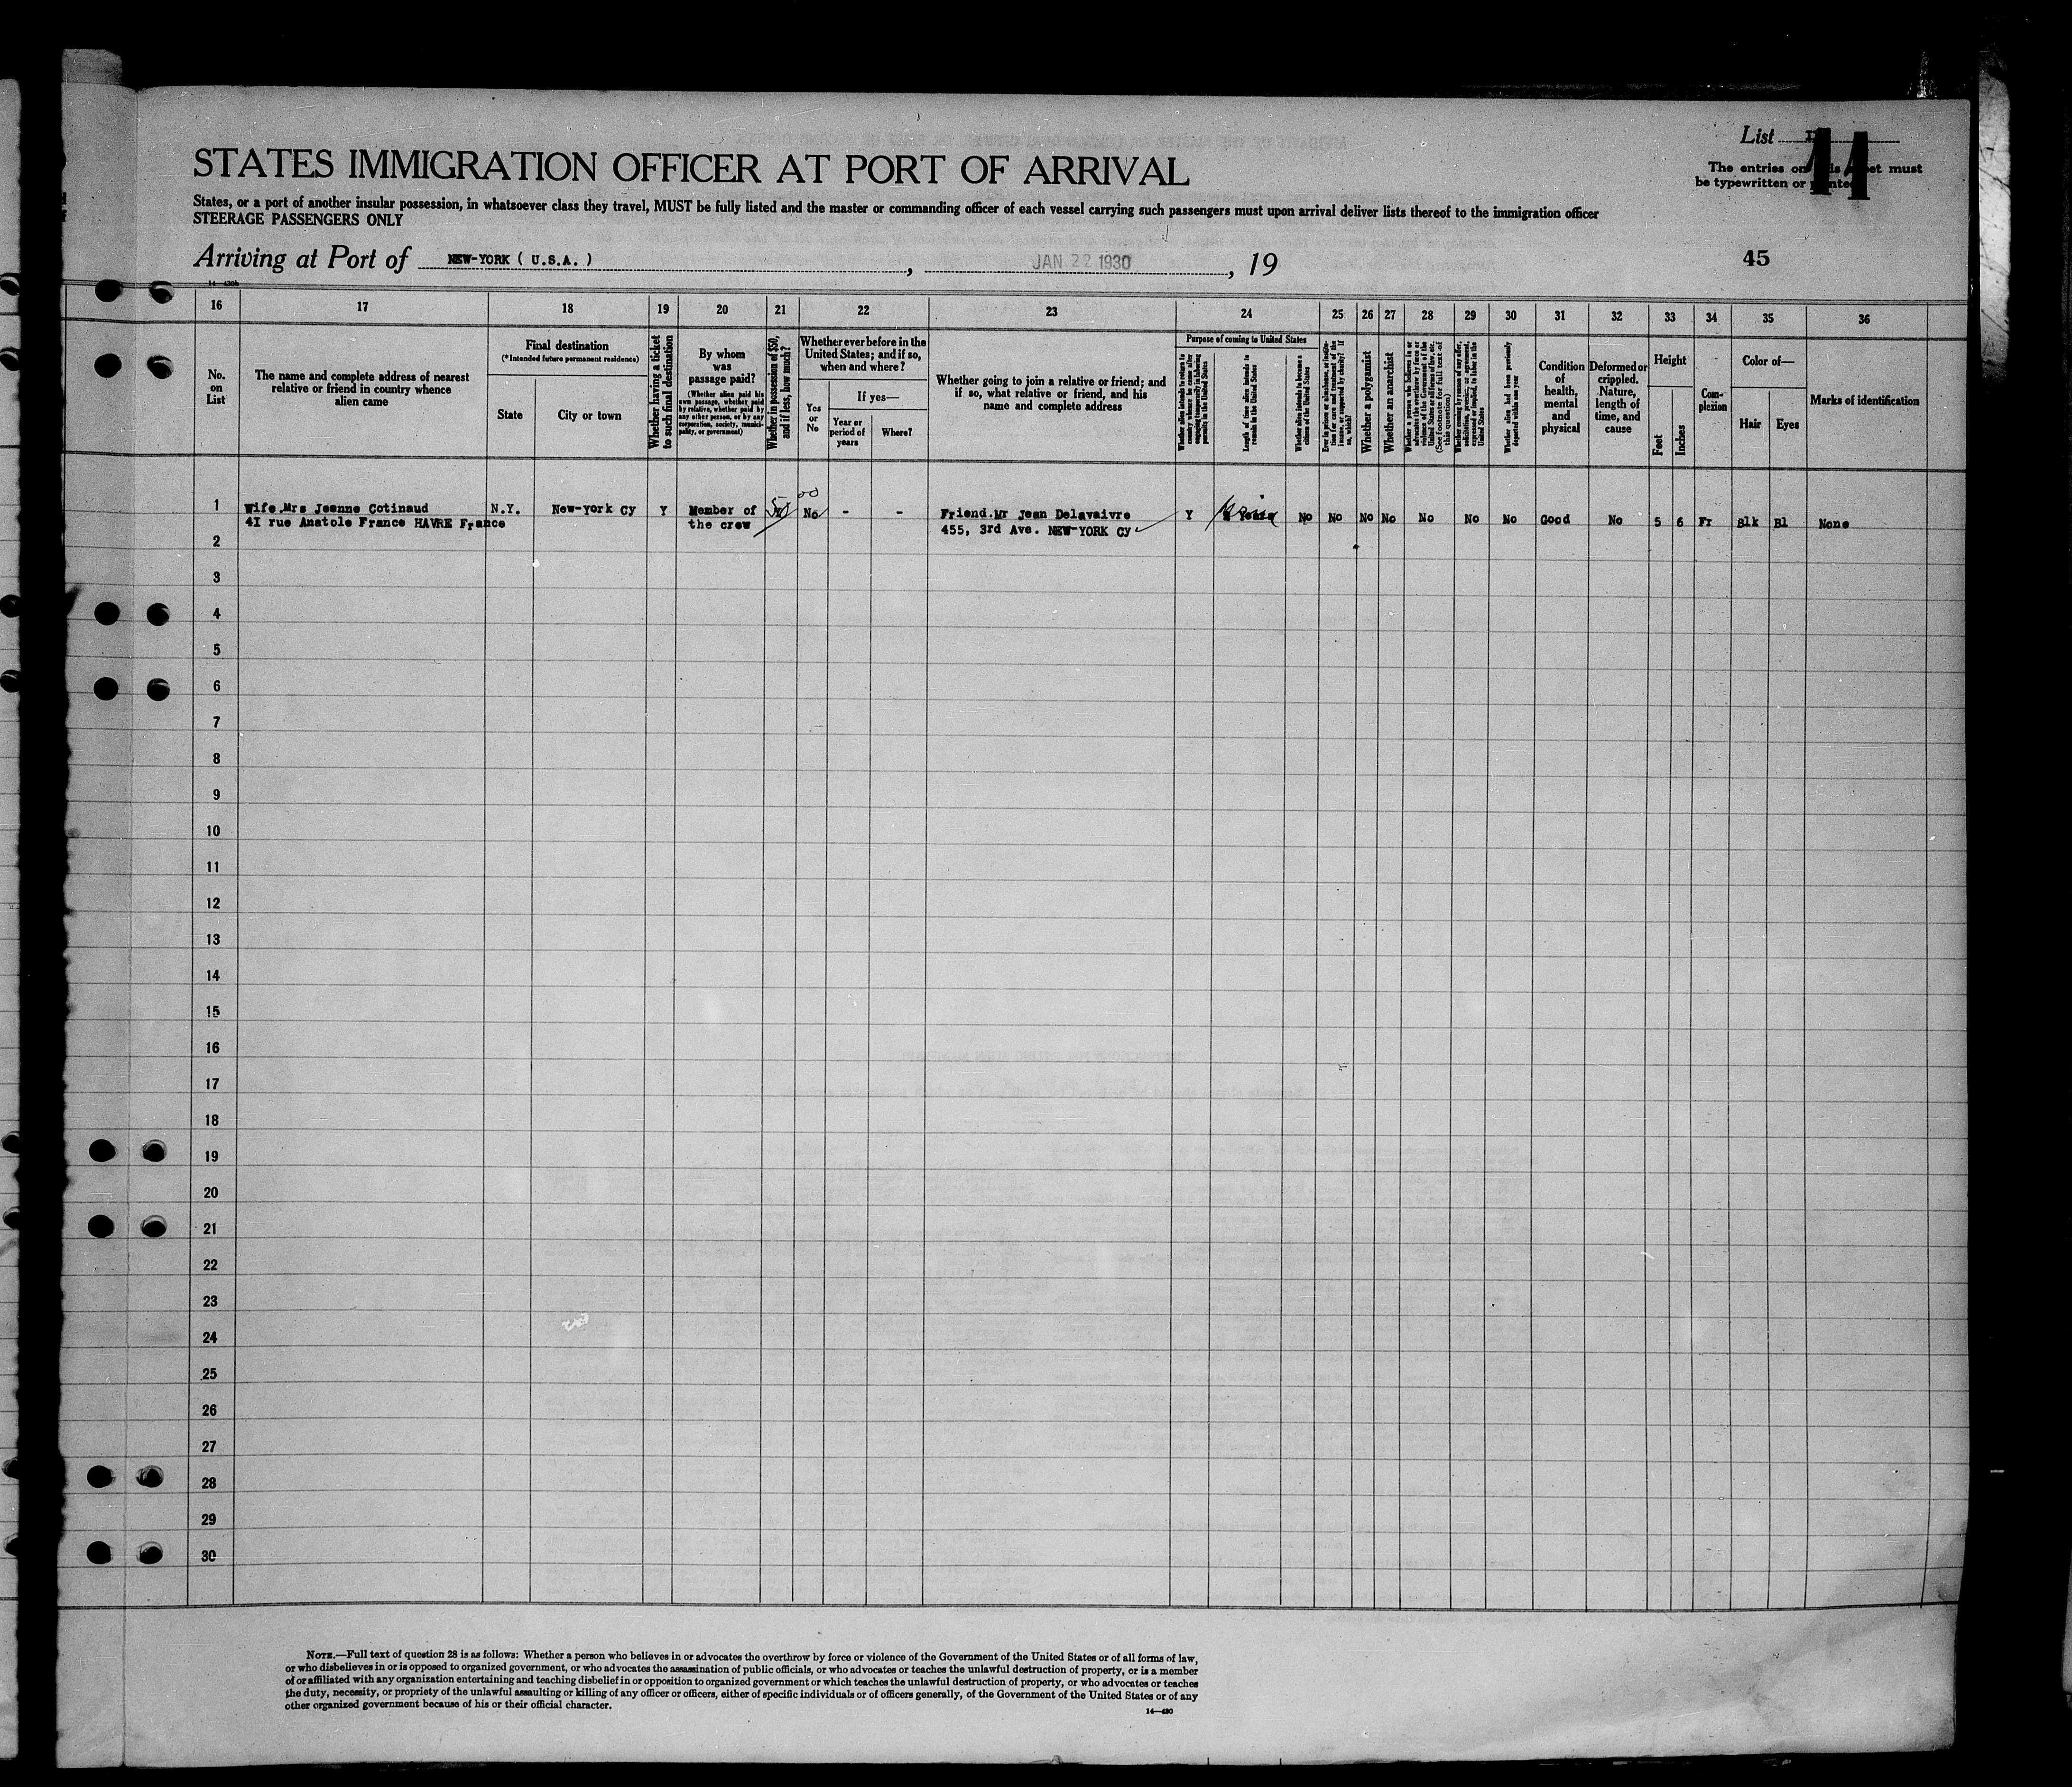 List
11
The entries on this sheet must
be typewritten or printed
STATES IMMIGRATION OFFICER AT PORT OF ARRIVAL
States, or a port of another insular possession, in whatsoever class they travel, MUST be fully listed and the master or commanding officer of each vessel carrying such passengers must upon arrival deliver lists thereof to the immigration officer
STEERAGE PASSENGERS ONLY
Arriving at Port of NEW-YORK ( U.S.A. ) , JAN 22 1930 , 19
45
16 17 18 19 20 21 22 23 24 25 26 27 28 29 30 31 32 33 34 35 36
No.
on
List
The name and complete address of nearest
relative or friend in country whence
alien came
Final destination
(*Intended future permanent residence)
State
City or town
Whether having a ticket
to such final destination
By whom
was
passage paid?
(Whether alien paid his
own passage, whether paid
by relative, whether paid by
any other person, or by any
corporation, society, munici-
pality, or government)
Whether in possession of $50,
and if less, how much?
Whether ever before in the
United States; and if so,
when and where?
Yes
or
No
If yes—
Year or
period of
years
Where?
Whether going to join a relative or friend; and
if so, what relative or friend, and his
name and complete address
Purpose of coming to United States
Whether alien intends to return to
country whence he came after
engaging temporarily in laboring
pursuits in the United States
Length of time alien intends to
remain in the United States
Whether alien intends to become a
citizen of the United States
Ever in prison or almshouse, or institu-
tion for care and treatment of the
insane, or supported by charity? If
so, which?
Whether a polygamist
Whether an anarchist
Whether a person who believes in or
advocates the overthrow by force or
violence of the Government of the
United States or all forms of law, etc.
(See footnote for full text of
this question)
Whether coming by reason of any offer,
solicitation, promise, or agreement,
expressed or implied, to labor in the
United States
Whether alien had been previously
deported within one year
Condition
of
health,
mental
and
physical
Deformed or
crippled.
Nature,
length of
time, and
cause
Height
Feet
Inches
Com-
plexion
Color of—
Hair
Eyes
Marks of identification
1 Wife.Mrs Jeanne Cotinaud N.Y. New-York Cy Y Member of 50 00 No - - Friend.Mr Jean Delavaivre Y No No No No No No No Good No 5 6 Fr Blk Bl None
4I rue Anatole France HAVRE France the crew 455, 3rd Ave. NEW-YORK Cy
2
3
4
5
6
7
8
9
10
11
12
13
14
15
16
17
18
19
20
21
22
23
24
25
26
27
28
29
30
NOTE.—Full text of question 28 is as follows: Whether a person who believes in or advocates the overthrow by force or violence of the Government of the United States or of all forms of law,
or who disbelieves in or is opposed to organized government, or who advocates the assassination of public officials, or who advocates or teaches the unlawful destruction of property, or is a member
of or affiliated with any organization entertaining and teaching disbelief in or opposition to organized government or which teaches the unlawful destruction of property, or who advocates or teaches
the duty, necessity, or propriety of the unlawful assaulting or killing of any officer or officers, either of specific individuals or of officers generally, of the Government of the United States or of any
other organized government because of his or their official character.
14—430